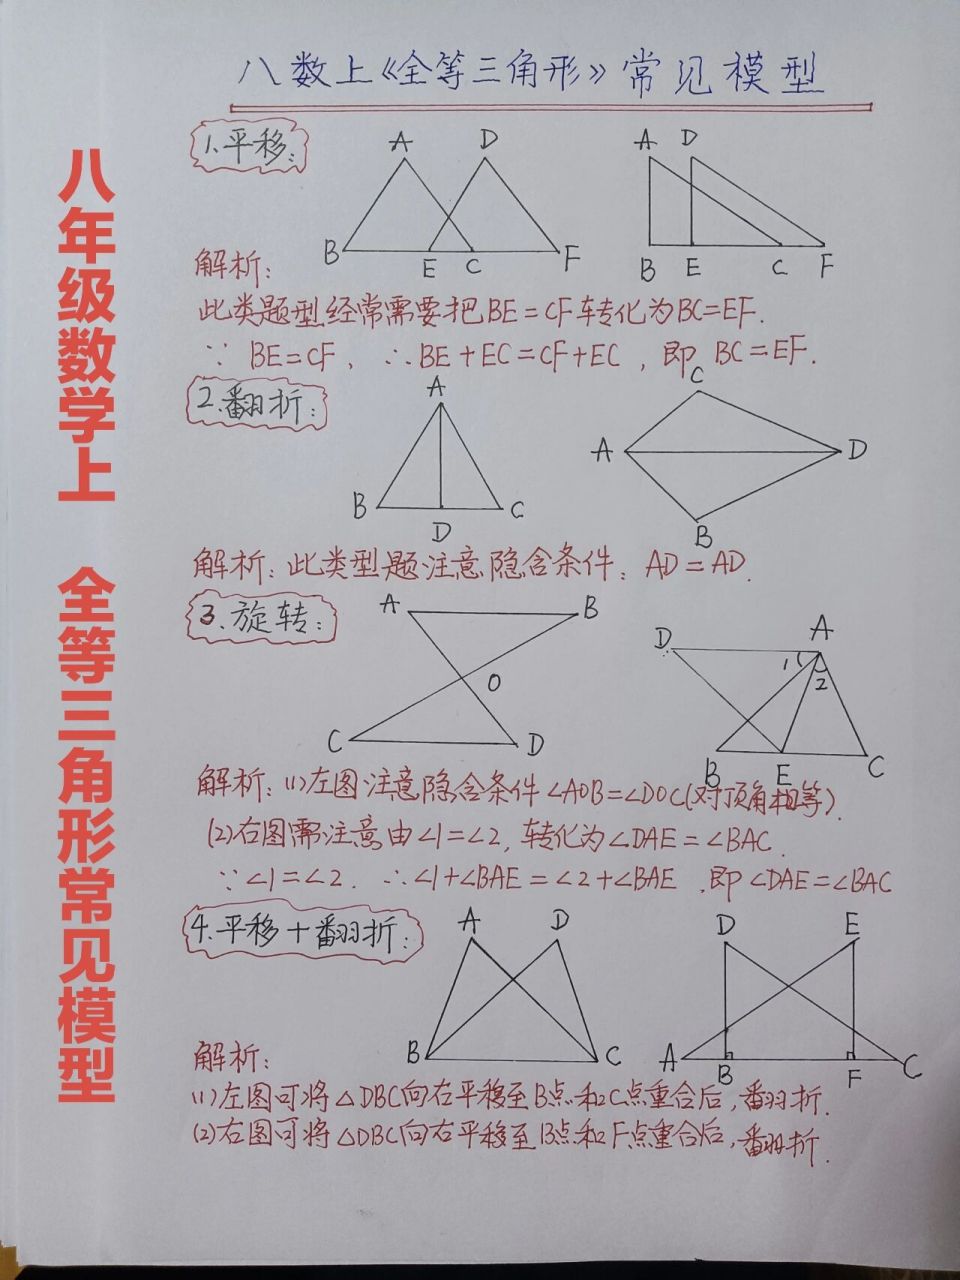 八数上《全等三角形》常见模型
八年级数学上 全等三角形常见模型
1.平移:
A D
B E C F
A D
B E C F
解析:
此类题型经常需要把BE=CF转化为BC=EF.
∵ BE=CF, ∴BE+EC=CF+EC, 即 BC=EF.
2.翻折:
A
B D C
C
A D
B
解析:此类型题注意隐含条件: AD=AD.
3.旋转:
A B
O
C D
D A
1 2
B E C
解析: (1)左图注意隐含条件∠AOB=∠DOC(对顶角相等).
(2)右图需注意由∠1=∠2, 转化为∠DAE=∠BAC.
∵∠1=∠2. ∴∠1+∠BAE=∠2+∠BAE .即∠DAE=∠BAC
4.平移+翻折:
A D
B C
D E
A B F C
解析:
(1)左图可将△DBC向右平移至B点和C点重合后,翻折.
(2)右图可将△DBC向右平移至B点和F点重合后,翻折.